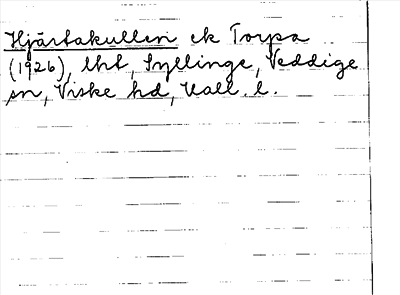 Hjärtakullen ek Torpa
(1926), lht, Syllinge, Veddige
sn, Viske hd, Hall. l.